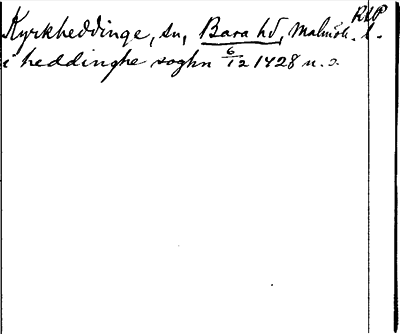 RAP
Kyrkheddinge, sn, Bara hd, Malmöh. l.
i heddinghe soghn 6/12 1428